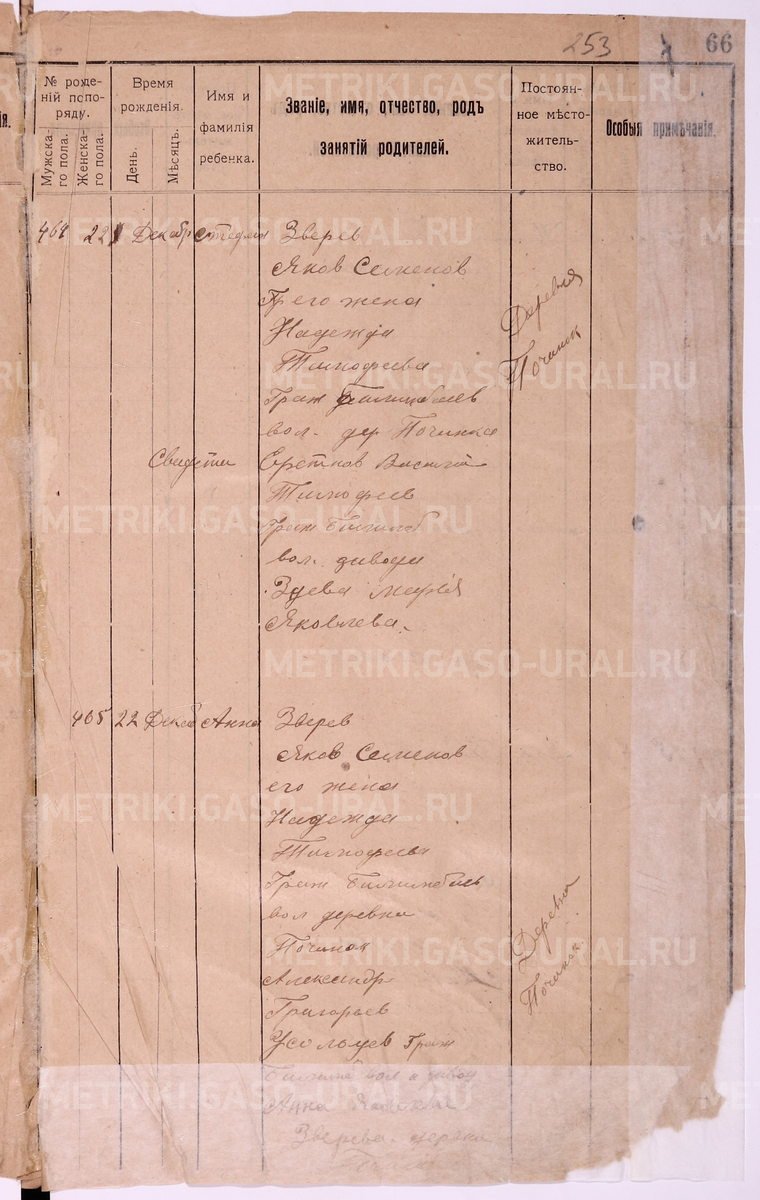 253
66
№ рожде-
ній по по-
ряду.
Мужска-
го пола.
Женска-
го пола.
Время
рожденія.
День.
Мѣсяцъ.
Имя и
фамилія
ребенка.
Званіе, имя, отчество, родъ
занятій родителей.
Постоян-
ное мѣсто-
житель-
ство.
Особыя примѣчанія.
464 22 Декабр Стефан Зверев
Яков Семенов
его жена
Надежда
Тимофеева
Граж Билимбаев
вол. дер Починка
Деревня
Починок
Свидети Василий
Тимофеев
Граж Билимб
вол.
Мария
Яковлева.
465 22 Декаб Анна Зверев
Яков Семенов
его жена
Надежда
Тимофеева
Граж Билимбаев
вол деревни
Починок
Деревня
Починок.
Александр
Григорьев
Усольцев Граж
вол
Анна
Зверева
METRIKI.GASO-URAL.RU